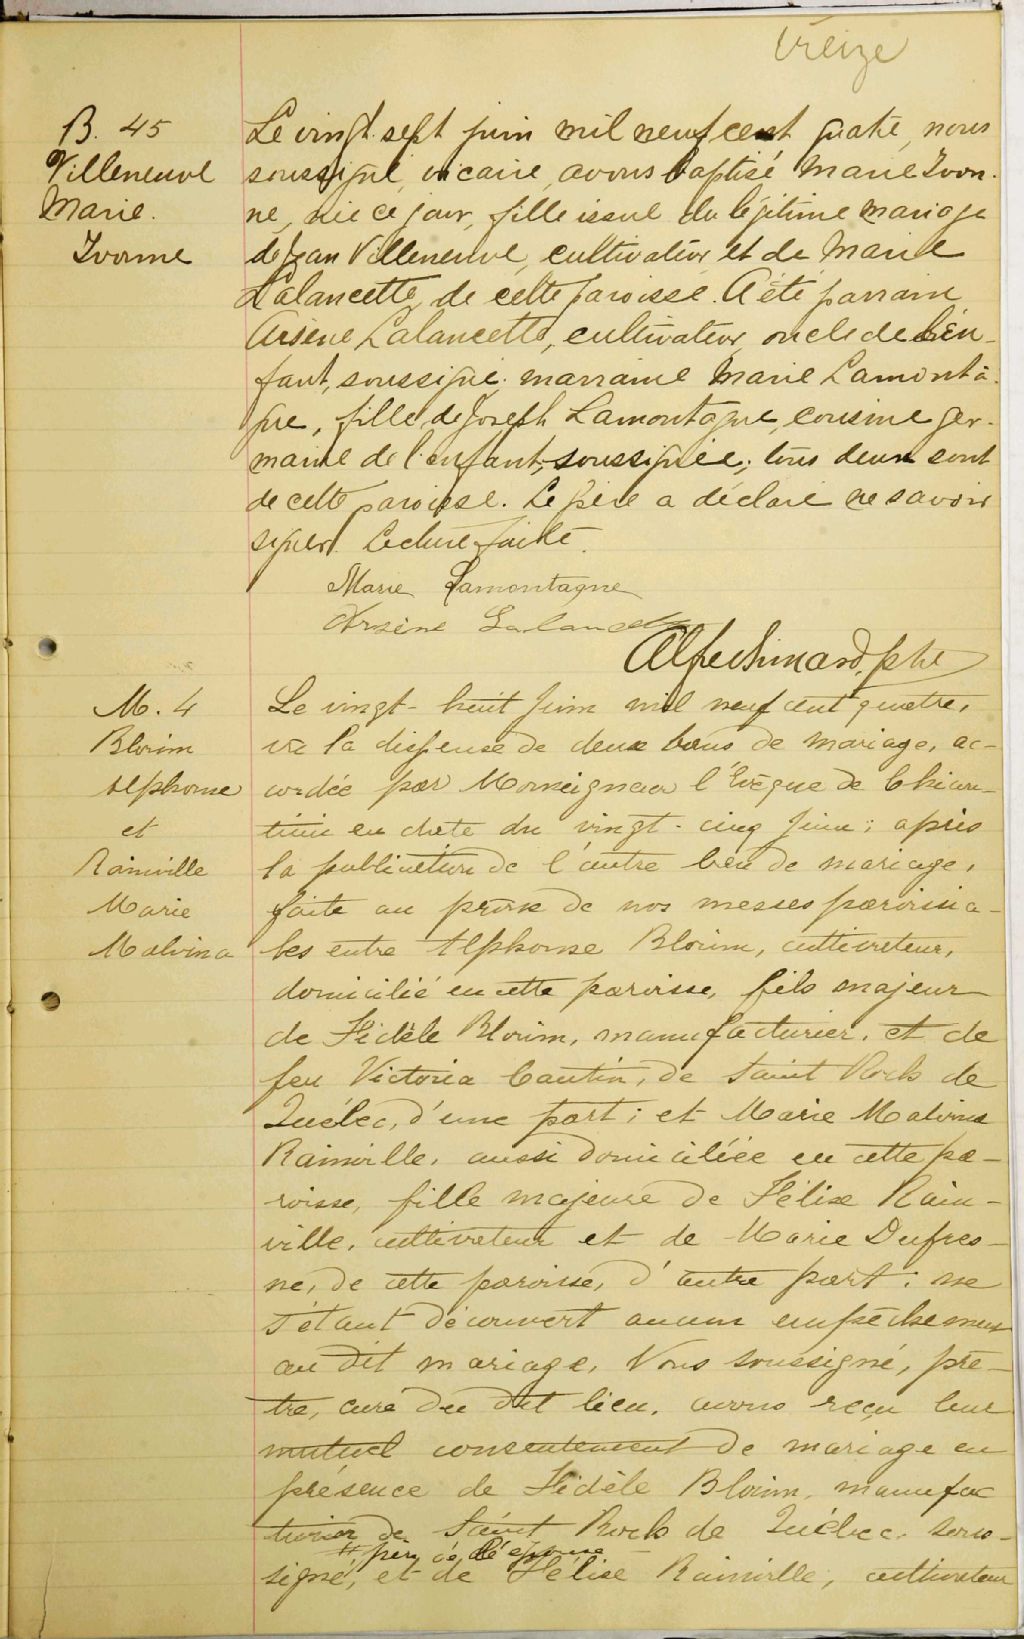 treize
B. 45
Villeneuve
Marie.
Ivonne
Le vingt-sept juin mil neuf cent quatre, nous
soussigné, vicaire, avons baptisé Marie Ivon-
ne, née ce jour, fille issue du légitime mariage
de Jean Villeneuve, cultivateur et de Marie
Lalancette, de cette paroisse. A été parrain
Arsène Lalancette, cultivateur, oncle de l'en-
fant, soussigné; marraine Marie Lamonta-
gne, fille de Joseph Lamontagne, cousine ger-
maine de l'enfant, soussignée; tous deux sont
de cette paroisse. Le père a déclaré ne savoir
signer. Lecture faite.
Marie Lamontagne
Arsène Lalancette
Alfr Simard, ptre
M. 4
Blouin
Alphonse
et
Rainville
Marie
Malvina
Le vingt-huit Juin mil neuf cent quatre,
vu la dispense de deux bans de mariage, ac-
cordée par Monseigneur l'Evêque de Chicou-
timi en date du vingt-cinq Juin; après
la publication de l'autre ban de mariage,
faite au prône de nos messes paroissia-
les entre Alphonse Blouin, cultivateur,
domicilié en cette paroisse, fils majeur
de Fidèle Blouin, manufacturier, et de
feu Victoria Cantin, de Saint Roch de
Québec, d'une part; et Marie Malvina
Rainville, aussi domiciliée en cette pa-
roisse, fille majeure de Félix Rain-
ville, cultivateur et de Marie Dufres-
ne, de cette paroisse, d'autre part; ne
s'étant découvert aucun empêchement
au dit mariage, Nous soussigné, prê-
tre, curé du dit lieu, avons reçu leur
mutuel consentement de mariage en
présence de Fidèle Blouin, manufac
turier de Saint Roch de Québec, sous-
père de l'époux
signé, et de Félix Rainville, cultivateur